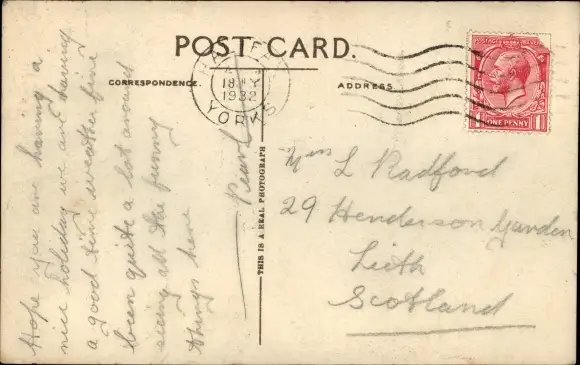 POST CARD.
CORRESPONDENCE.
ADDRESS
YORKS
1932
POSTAGE
ONE PENNY
THIS IS A REAL PHOTOGRAPH
Hope you are having a
nice holiday we are having
a good time weather fine
been quite a lot around
seeing all the funny
things here
Pearl
Miss L Radford
29 Henderson Garden
Leith
Scotland